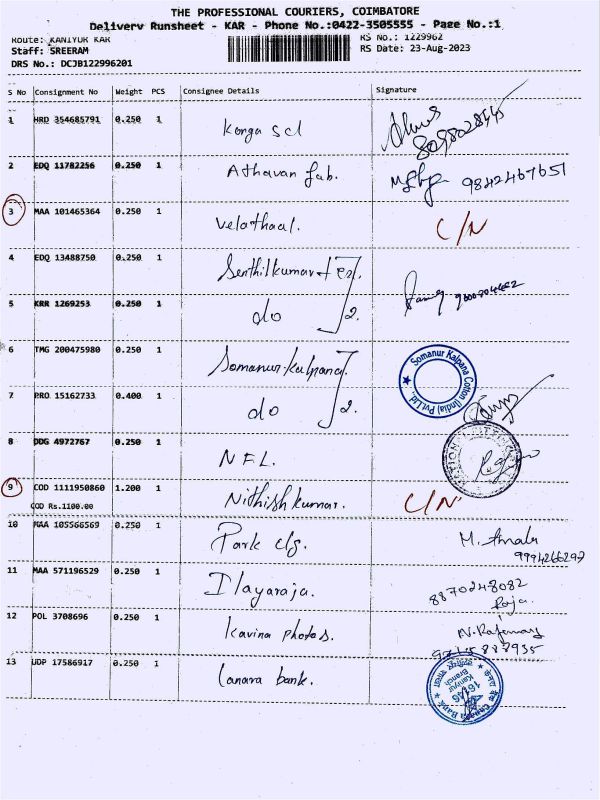 THE PROFESSIONAL COURIERS, COIMBATORE
Delivery Runsheet - KAR - Phone No.:0422-3505555 - Page No.:1
Route: KANIYUR KAR
RS No.: 1229962
Staff: SREERAM
RS Date: 23-Aug-2023
DRS No.: DCJB122996201
S No Consignment No Weight PCS Consignee Details Signature
1 HRD 354685791 0.250 1 Konga scl
2 EDQ 11782256 0.250 1 Athavan fab. 9842467651
3 MAA 101465364 0.250 1 Velathaal. C/N
4 EDQ 13488750 0.250 1 Senthilkumar
5 KRR 1269253 0.250 1 do 2.
6 TMG 200475980 0.250 1 Somanur-kalpana Somanur Kalpana Cotton (India) Pvt.Ltd.
7 PRO 15162733 0.400 1 do 2.
8 DDG 4972767 0.250 1 N.F.L.
9 COD 1111950860 1.200 1 Nithish kumar. C/N
COD Rs.1100.00
10 MAA 105566569 0.250 1 Park clg. M.
9994266297
11 MAA 571196529 0.250 1 Ilayaraja. 8870248082
Raja.
12 POL 3708696 0.250 1 kavina photos.
13 UDP 17586917 0.250 1 Canara bank. Canara Bank Kaniyur Branch 16146